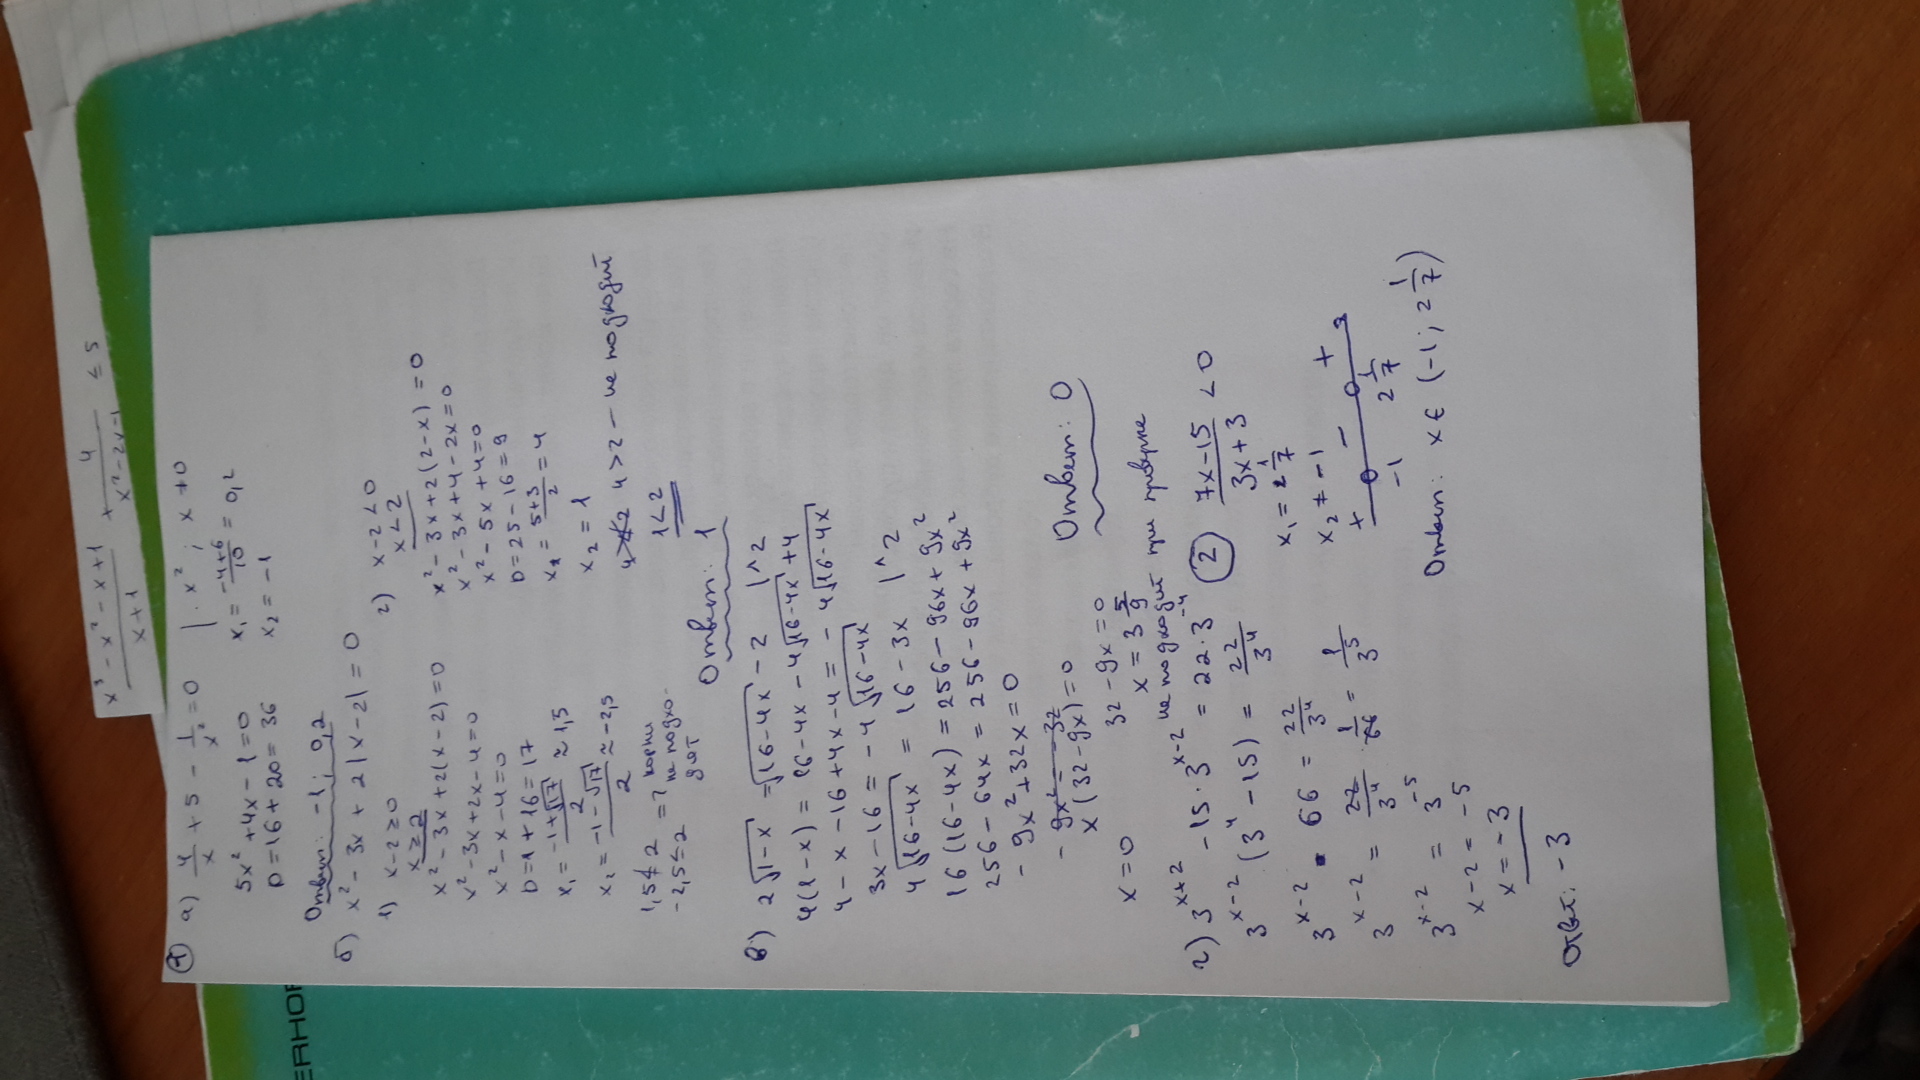 x³ - x² - x + 1 / x + 1 + 4 / x² - 2x - 1 ≤ 5
① а) 4/x + 5 - 1/x² = 0 | · x² ; x ≠ 0
5x² + 4x - 1 = 0
D = 16 + 20 = 36
x₁ = -4+6/10 = 0,2
x₂ = -1
Ответ: -1; 0,2
б) x² - 3x + 2|x - 2| = 0
1) x - 2 ≥ 0
x ≥ 2
x² - 3x + 2(x - 2) = 0
x² - 3x + 2x - 4 = 0
x² - x - 4 = 0
D = 1 + 16 = 17
x₁ = -1+√17/2 ≈ 1,5
x₂ = -1-√17/2 ≈ -2,5
1,5 ≱ 2
-2,5 ≤ 2 => корни не подхо-
дят
2) x - 2 < 0
x < 2
x² - 3x + 2(2 - x) = 0
x² - 3x + 4 - 2x = 0
x² - 5x + 4 = 0
D = 25 - 16 = 9
x₁ = 5+3/2 = 4
x₂ = 1
4 > 2 – не подходит
1 < 2
Ответ: 1
в) 2√1-x = √16-4x - 2 |^2
4(1 - x) = 16 - 4x - 4√16-4x + 4
4 - x - 16 + 4x - 4 = - 4√16-4x
3x - 16 = - 4√16-4x
4√16-4x = 16 - 3x |^2
16(16 - 4x) = 256 - 96x + 9x²
256 - 64x = 256 - 96x + 9x²
- 9x² + 32x = 0
- 9x² = - 32
x(32 - 9x) = 0
x = 0
32 - 9x = 0
x = 3 5/9
не подходит при проверке
Ответ: 0
г) 3^x+2 - 15 · 3^x-2 = 22 · 3^-4
3^x-2 (3^4 - 15) = 22/3^4
3^x-2 · 66 = 22/3^4
3^x-2 = 22/3^4 · 1/66 = 1/3^5
3^x-2 = 3^-5
x - 2 = -5
x = -3
Ответ: -3
② 7x-15/3x+3 < 0
x₁ = 2 1/7
x₂ ≠ -1
+ - +
-1 2 1/7
Ответ: x ∈ (-1; 2 1/7)